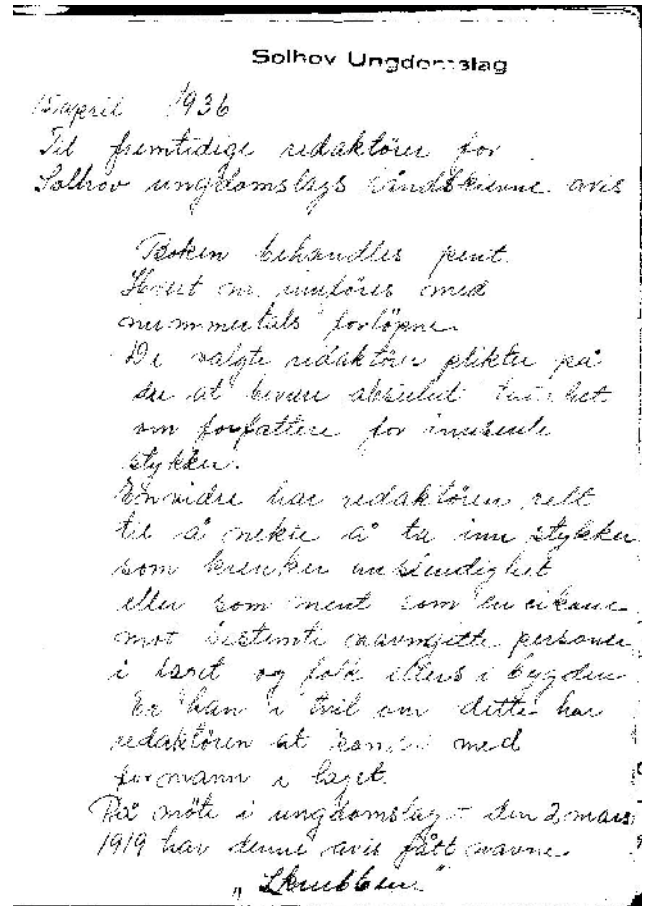 Solhov Ungdomslag
15 april 1936
Til fremtidige redaktörer for
Solhov ungdomslags håndskrevne avis
Boken behandles pent.
Hvert nr. innföres med
nummertals forlöpne.
De valgte redaktörer plikter på
ære at bevare absolut taushet
om forfattere for innsente
stykker.
Envidre har redaktören rett
til å nekte å ta inn stykker
som krenker anstendighet
eller som ment som en cikane
mot bestemte navngitte personer
i laget og folk ellers i bygden
Er han i tvil om dette har
redaktören at med
formann i laget.
På möte i ungdomslag den 2 mars
1919 har denne avis fått navne.
„